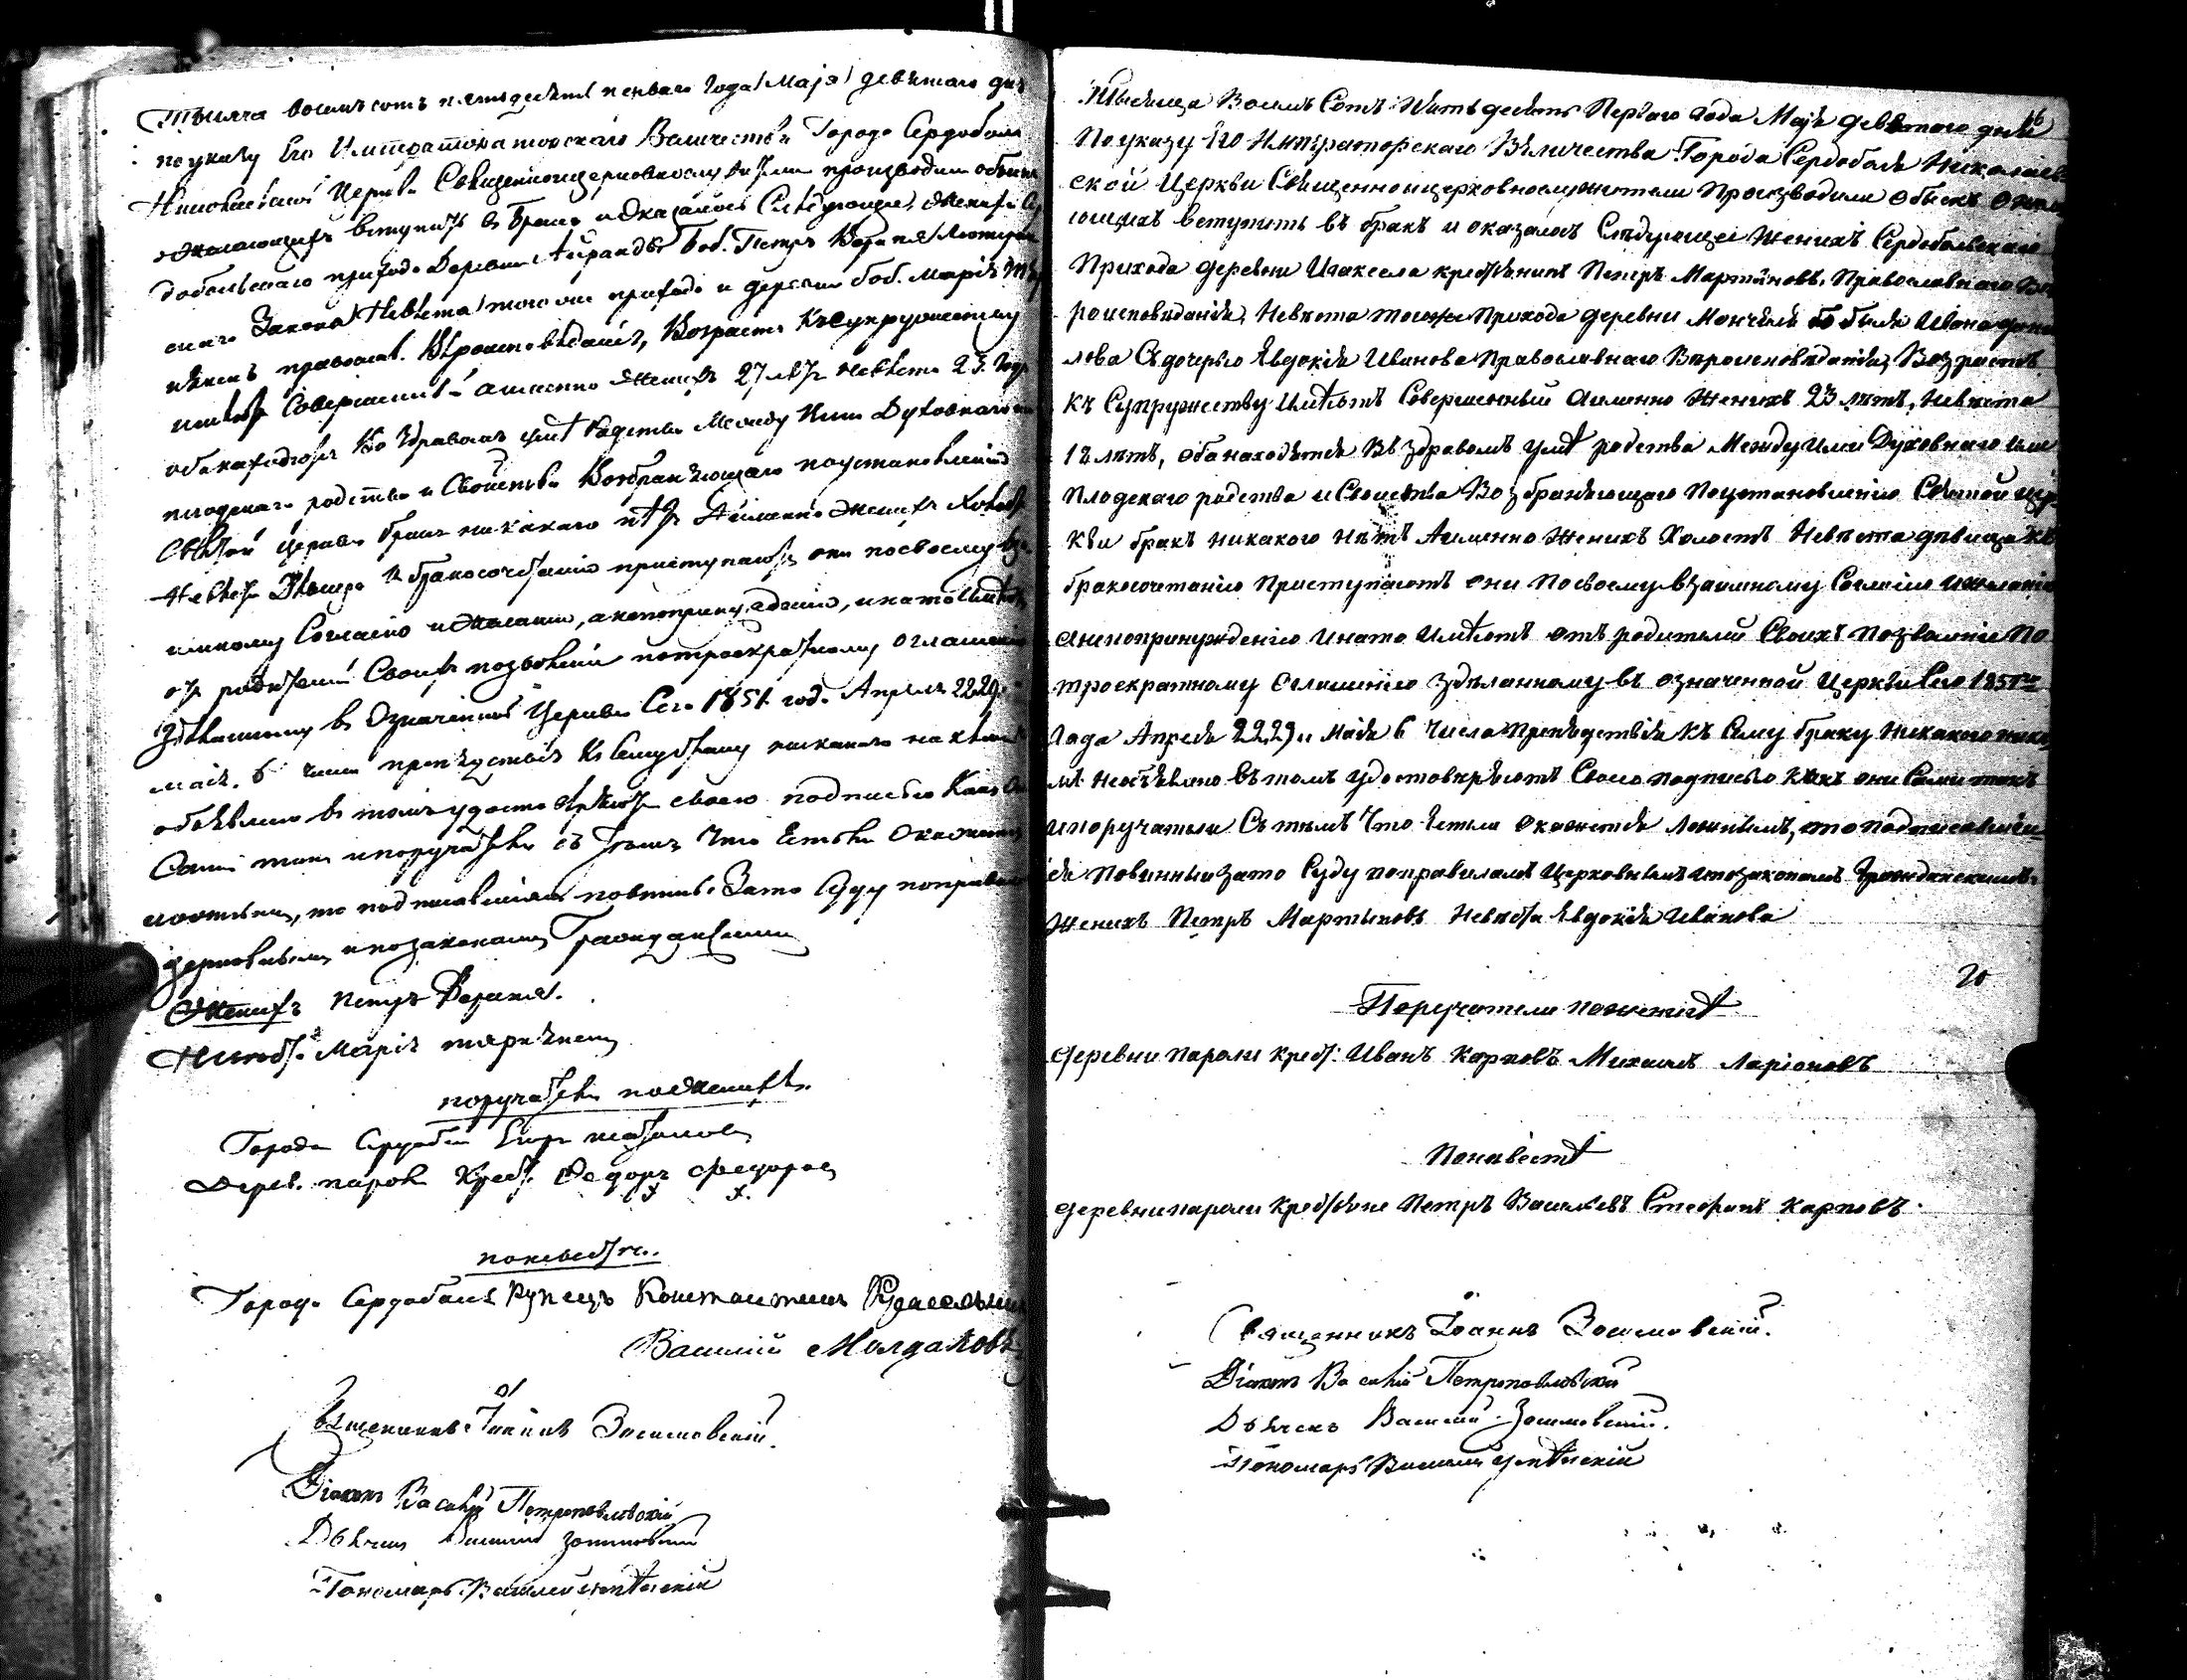 Тысяча восемьсотъ пятьдесятъ перваго года Маjя девятаго дня
по указу Его Императорскаго Величества Города Сердоболя
Николаевской Церкви Священноцерковнослужители производили обыскъ
о желающихъ вступить въ бракъ и оказалось Следующее, Женихъ Сер
добольскаго прихода Деревни боб. Петръ Лютеран
скаго Закона Невеста того же прихода и деревни боб. Марiя
православ. Вероисповеданiя, Возрастъ къ супружеству
имеютъ Совершенный а именно Женихъ 27 летъ Невеста 23. года
оба находятся во здравомъ уме родства между ими Духовнаго или
плодскаго родства и Свойства Возбраняющаго по установленiю
Святой церкви бракъ никакаго нетъ Аименно женихъ Холостъ
Невеста Девица к бракосочетанiю приступаютъ они по своему вза
имному Согласiю и желанiю, а не по принужденiю, и на то имеютъ
отъ родителей Своихъ позволенiе по троекратному оглашенiю
зделанному въ Означенной Церкви Сего 1851. года Апреля 22, 29. и
маiя. 6 числа препятствiя къ Сему браку никакаго никемъ
объявлено въ томъ удостоверяютъ своею подписью Какъ они
Сами такъ и поручатели съ темъ что Естьли Окажется
ложнымъ, то подписавшiяся повинны за то Суду по правиламъ
церковнымъ и по законамъ Гражданскимъ
Женихъ Петръ
Невеста Марiя
поручатели по женихе.
Города Сердоболя Егоръ
Дерев. пароли Крест. Федоръ Федоровъ
х х.
по невесте.
Города Сердоболя Купецъ Константинъ
Василiй Молдаковъ
Священникъ Iоаннъ Зосимовскiй.
Дiаконъ Василiй Петропавловскiй
Дьячекъ Василiй Зосимовскiй
Пономарь Василiй
16
Тысяща Восемь Сотъ Пять десятъ Перваго года Маjя девятаго дня
По указу Его Императорскаго Величества Города Сердоболя Николаев
ской Церкви Священноицерковнослужители Производили обыскъ о жела
ющихъ вступить въ бракъ и оказалось Следующее Женихъ Сердобольскаго
Прихода деревни Игаксела крестьянинъ Петръ Мартыновъ, Православнаго Ве
роисповеданiя, Невеста тогоже Прихода деревни бобыля Ивана
лова Съ дочерью Евдокiя Иванова Православнаго Вероисповеданiя, Возрастъ
къ Супружеству имеютъ Совершенный Аименно Женихъ 23 летъ, Невеста
18 летъ, оба находятся въ здравомъ уме родства Между ими Духовнаго или
Плодскаго родства и Свойства Возбраняющаго По установленiю Святой цер
кви бракъ никакого нетъ Аименно Женихъ Холостъ Невеста девица къ
бракосочетанiю Приступаютъ они По своему взаимному Согласiю и желанiю
а ни по принужденiю и на то имеютъ отъ родителей Своихъ Позволенiе По
троекратному Оглашенiю зделанному въ означенной Церкви Сего 1851го
Года Апреля 22, 29 и Маiя 6 Числа Препядствiя къ Сему браку Никакого ник
емъ Необъявлено въ томъ удостоверяютъ Своею подписью какъ они Сами такъ
и поручатели Съ темъ Что Естьли окажется Ложнымъ, то подписавшiи
ся Повинны за то Суду по правиламъ Церковнымъ и по законамъ Гражданскимъ.
Женихъ Петръ Мартыновъ Невеста Евдокiя Иванова
20
Поручатели по женихе
деревни пароли крест: Иванъ Карповъ Михаилъ Ларiоновъ
По невесте
деревни пароли крестьяне Петръ Васильевъ Стефанъ Карповъ.
Священникъ Iоаннъ Зосимовскiй.
Дiаконъ Василiй Петропавловскiй
Дьячекъ Василiй Зосимовскiй.
Пономарь Василiй